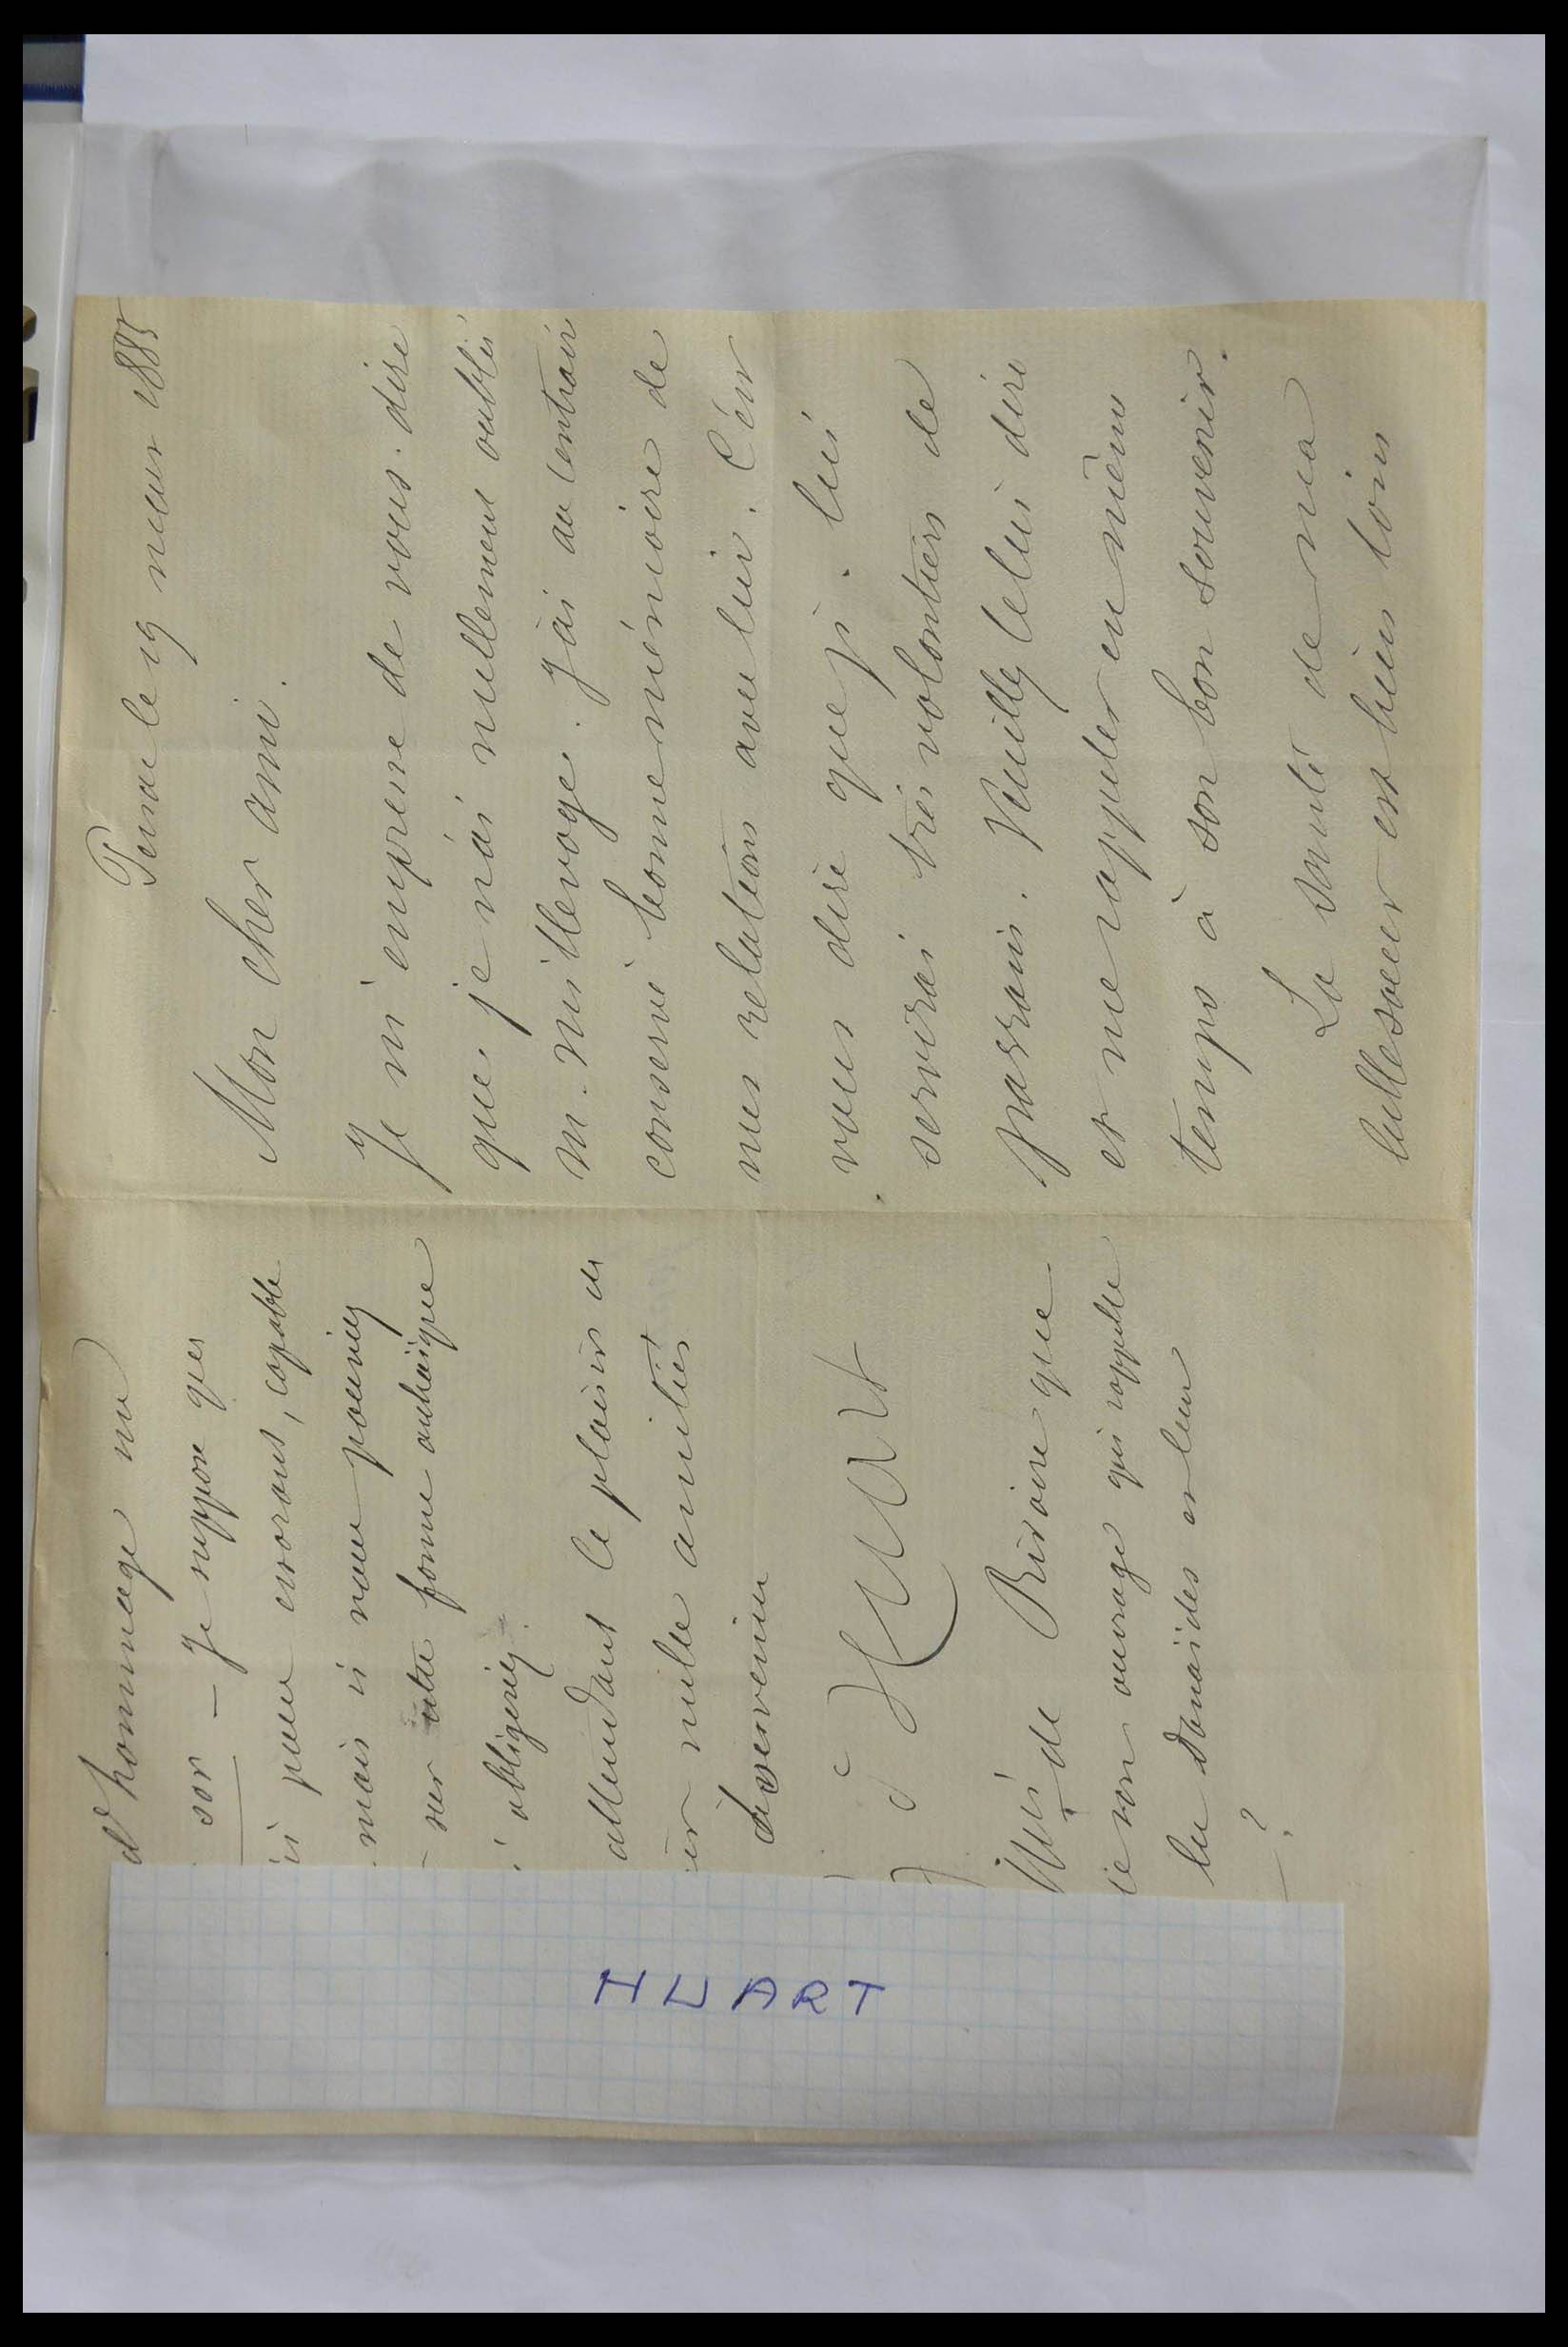 le 19 mars 1885
Mon cher ami.
Je m'empresse de vous dire
que je n'ai nullement oublié
M. Millevoye. J'ai au contraire
conservé bonne mémoire de
mes relations avec lui. C'est
vous dire que je lui
servirai très volontiers de
parrain. Veuillez le lui dire
et me rappeler en même
temps à son bon souvenir.
La santé de ma
belle soeur est bien loin
d'hommage au
sor — Je suppose que
pour capable
mais si vous pouviez
sur cette forme archaïque
obligeriez.
attendant le plaisir de
mille amitiés
J Huart
de que
son ouvrage qui rappelle
les Danaïdes et leur
?
HUART